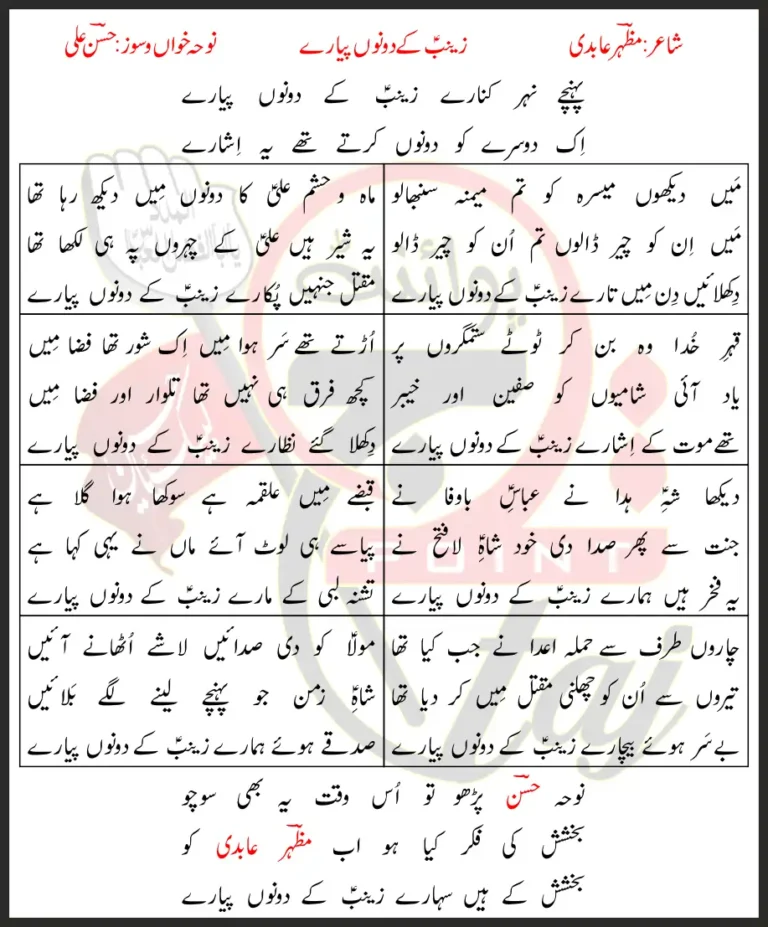 شاعر: مظہر عابدی زینبؑ کے دونوں پیارے نوحہ خواں و سوز: حسن علی
پہنچے نہر کنارے زینبؑ کے دونوں پیارے
اِک دوسرے کو دونوں کرتے تھے یہ اِشارے
مَیں دیکھوں میسرہ کو تم میمنہ سنبھالو
مَیں اِن کو چیر ڈالوں تم اُن کو چیر ڈالو
دِکھلائیں دِن مِیں تارے زینبؑ کے دونوں پیارے
ماہ و حشم علیؑ کا دونوں مِیں دیکھ رہا تھا
یہ شیر ہیں علیؑ کے چہروں پہ ہی لکھا تھا
مقتل جنہیں پُکارے زینبؑ کے دونوں پیارے
قہرِ خُدا وہ بن کر ٹوٹے ستمگروں پر
یاد آئی شامیوں کو صفین اور خیبر
تھے موت کے اِشارے زینبؑ کے دونوں پیارے
اُڑتے تھے سَر ہوا مِیں اِک شور تھا فضا مِیں
کچھ فرق ہی نہیں تھا تلوار اور فضا مِیں
دِکھلا گئے نظارے زینبؑ کے دونوں پیارے
دیکھا شہِؑ ہدا نے عباسِؑ باوفا نے
جنت سے پھر صدا دی خود شاہِؑ لافتح نے
یہ فخر ہیں ہمارے زینبؑ کے دونوں پیارے
قبضے مِیں علقمہ ہے سوکھا ہوا گلا ہے
پیاسے ہی لوٹ آئے ماں نے یہی کہا ہے
تشنہ لبی کے مارے زینبؑ کے دونوں پیارے
چاروں طرف سے حملہ اعدا نے جب کیا تھا
تیروں سے اُن کو چھلنی مقتل مِیں کر دیا تھا
بے سَر ہوئے بیچارے زینبؑ کے دونوں پیارے
مولاؑ کو دی صدائیں لاشے اُٹھانے آئیں
شاہِؑ زمن جو پہنچے لینے لگے بَلائیں
صدقے ہوئے ہمارے زینبؑ کے دونوں پیارے
نوحہ حسن پڑھو تو اُس وقت یہ بھی سوچو
بخشش کی فکر کیا ہو اب مظہر عابدی کو
بخشش کے ہیں سہارے زینبؑ کے دونوں پیارے
پوائنٹ
POINT
Taj